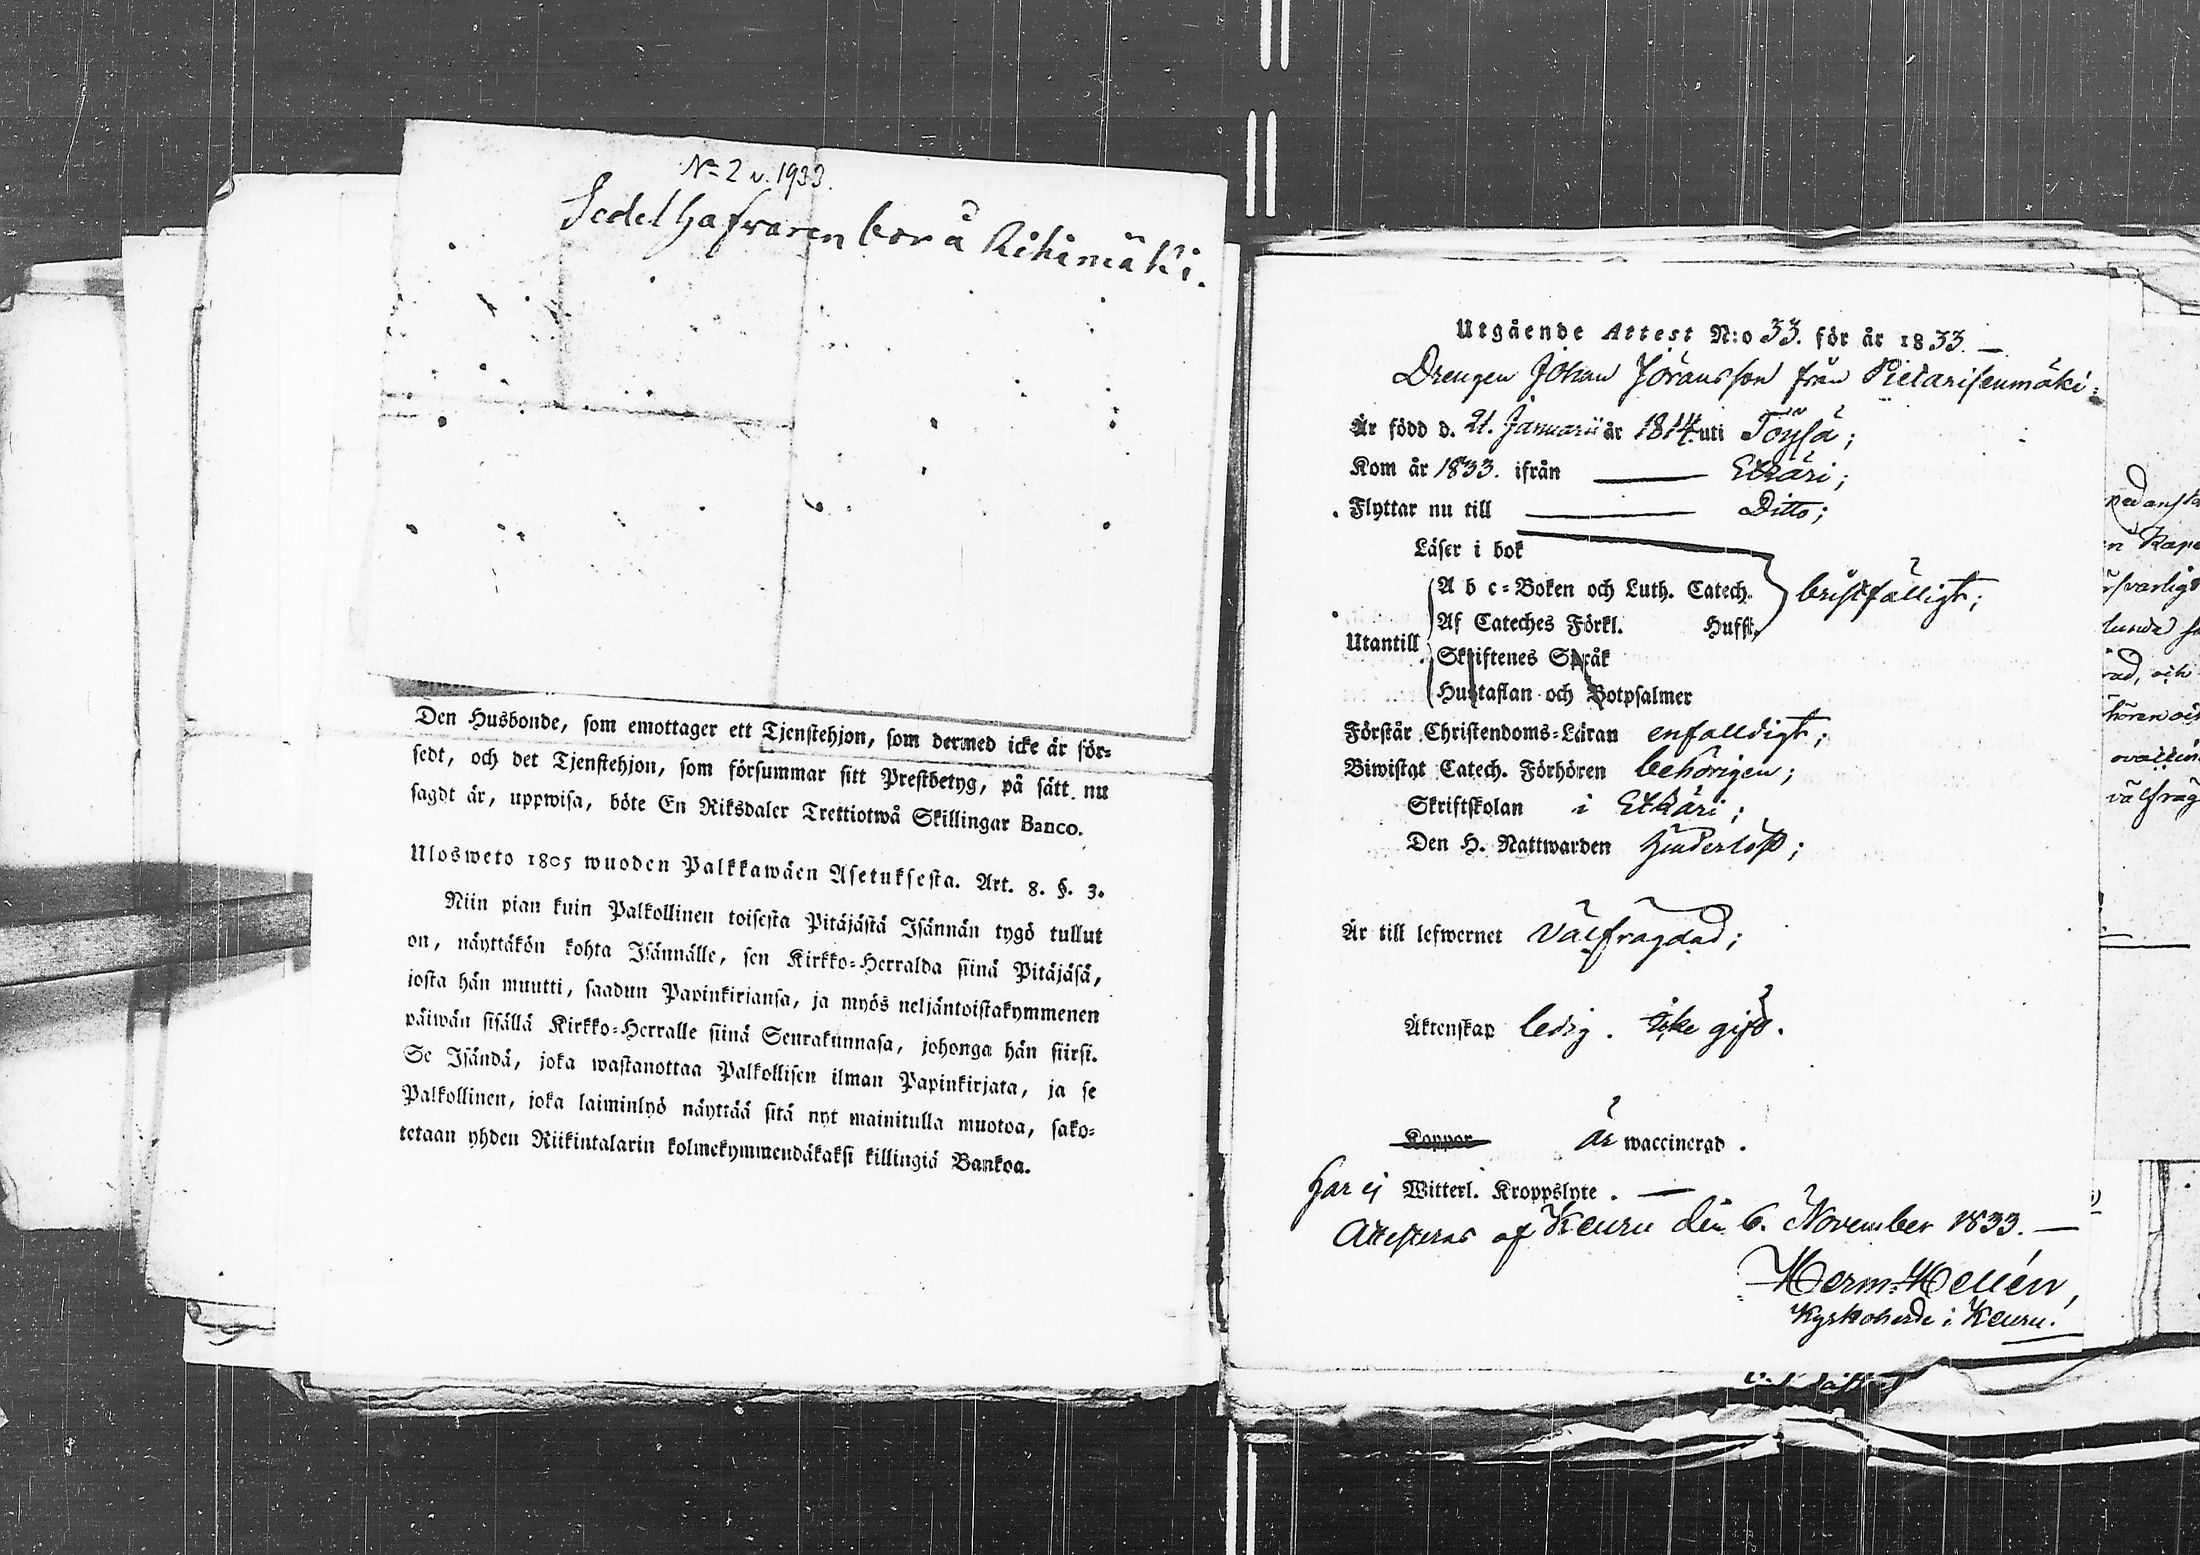 No 2 v. 1933.
Sedelhafvaren bor å Rihimäki.
Den Husbonde, som emottager ett Tjenstehjon, som dermed icke är för-
sedt, och det Tjenstehjon, som försummar sitt Prestbetyg, på sätt nu
sagdt är, uppwisa, böte En Riksdaler Trettiotwå Skillingar Banco.
Ulosweto 1805 wuoden Palkkawäen Asetuksesta. Art. 8. §. 3.
Niin pian kuin Palkollinen toisesta Pitäjästä Isännän tygö tullut
on, näyttäkön kohta Isännälle, sen Kirkko-Herralda siinä Pitäjäsä,
josta hän muutti, saadun Papinkirjansa, ja myös neljäntoistakymmenen
päiwän sisällä Kirkko-Herralle siinä Seurakunnasa, johonga hän siirsi.
Se Isändä, joka wastanottaa Palkollisen ilman Papinkirjata, ja se
Palkollinen, joka laiminlyö näyttää sitä nyt mainitulla muotoa, sako-
tetaan yhden Riikintalarin kolmekymmendäkaksi killingiä Bankoa.
Utgående Attest N:o 33. för år 1833. —
Drengen Johan Jöransson från Pietarisenmäki
Är född d. 21. Januarii år 1814 uti Töysä;
Kom år 1833. ifrån — Etkäri;
Flyttar nu till — Ditto;
Läser i bok
A b c-Boken och Luth. Catech. bristfälligt;
Af Cateches Förkl. Hufst.
Utantill
Skriftenes Språk
Hustaflan och Botpsalmer
Förstår Christendoms-Läran enfalldigt;
Biwistat Catech. Förhören behörigen;
Skriftskolan i Etkäri;
Den H. Nattwarden hinderlöst;
Är till lefwernet välfrägdad;
Äktenskap ledig. icke gift.
Koppor är waccinerad.
har ej Witterl. Kroppslyte. —
Attesteras af Keuru den 6. November 1833. —
Herm. Hellén,
Kyrkoherde i Keuru.